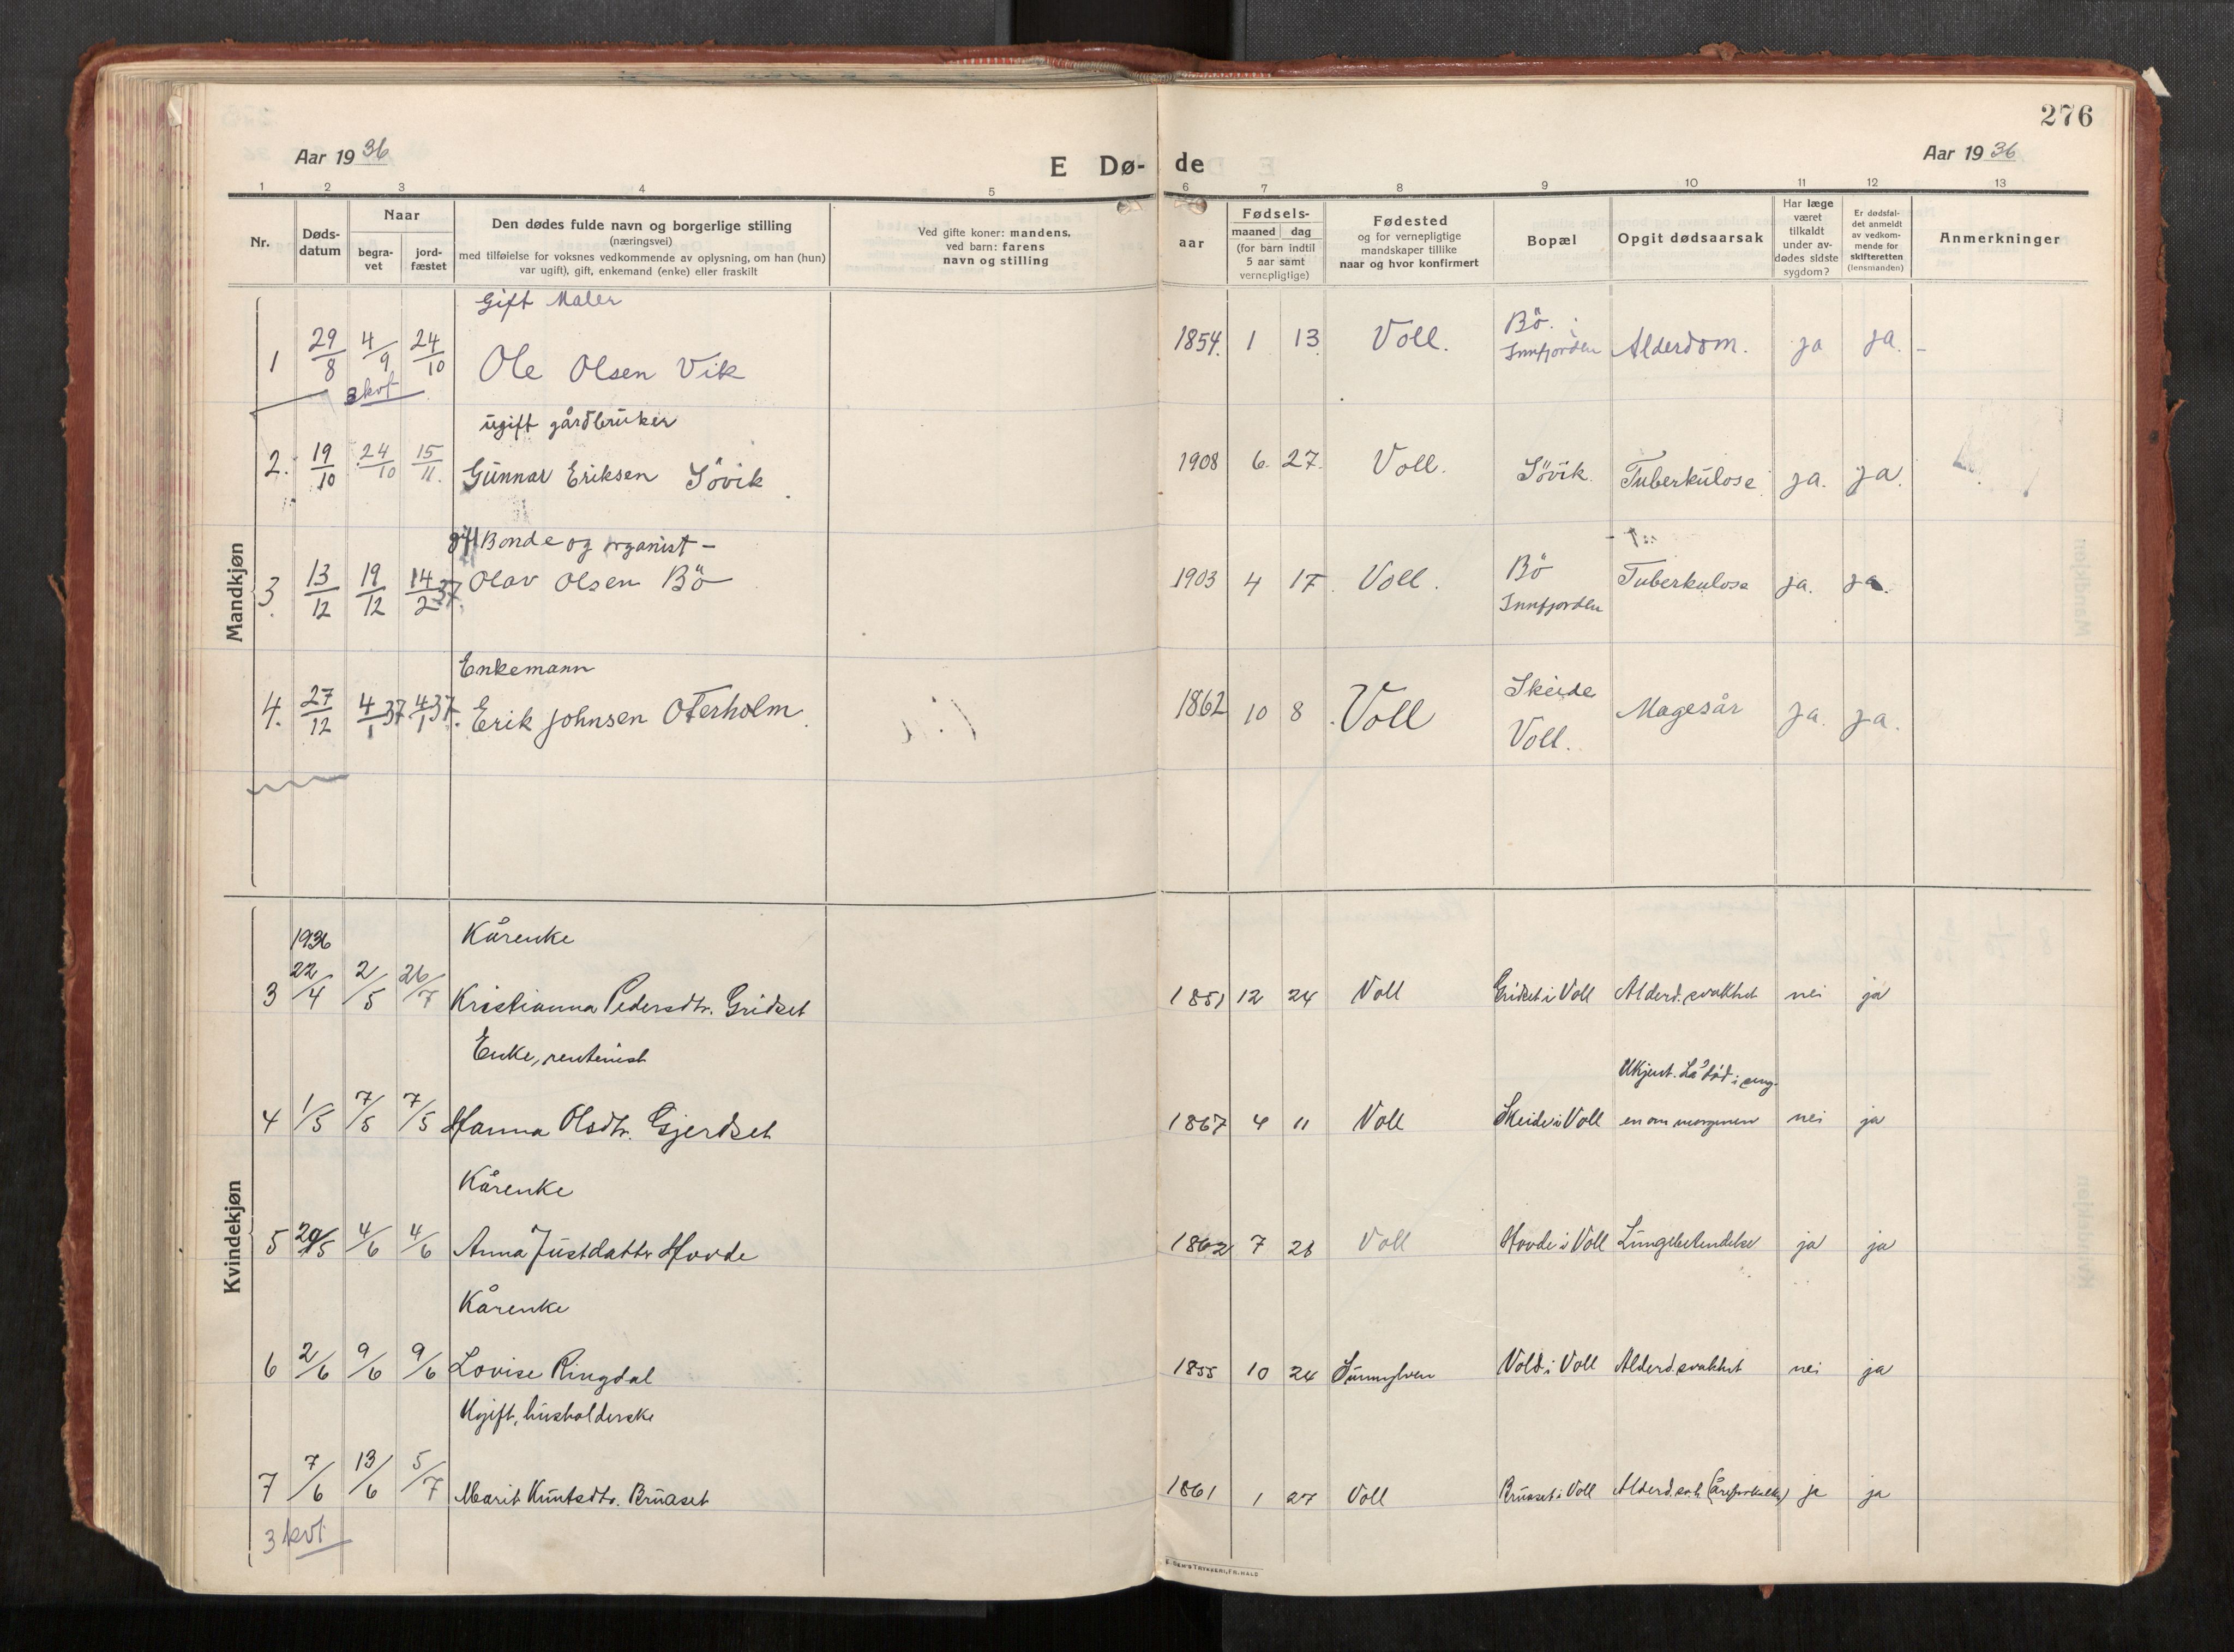 276
Aar 1936
Aar 1936
E Dø-
de
1 2 3 4 5 6 7 8 9 10 11 12 13
Nr.
Døds-
datum
Naar
begra-
vet
jord-
fæstet
Den dødes fulde navn og borgerlige stilling
(næringsvei)
med tilføielse for voksnes vedkommende av oplysning, om han (hun)
var ugift), gift, enkemand (enke) eller fraskilt
Ved gifte koner: mandens,
ved barn: farens
navn og stilling
aar
Fødsels-
maaned dag
(for barn indtil
5 aar samt
vernepligtige)
Fødested
og for vernepligtige
mandskaper tillike
naar og hvor konfirmert
Bopæl
Opgit dødsaarsak
Har læge
været
tilkaldt
under av-
dødes sidste
sygdom?
Er dødsfal-
det anmeldt
av vedkom-
mende for
skifteretten
(lensmanden)
Anmerkninger
Mandkjøn
Gift Maler
1 29/8 4/9 24/10 Ole Olsen Vik 1854. 1 13. Voll. Bö. Innfjorden Alderdom. ja ja. -
3 kvt
ugift gårdbruker
2. 19/10 24/10 15/11. Gunnar Eriksen Sövik. 1908 6. 27. Voll. Sövik. Tuberkulose ja. ja.
gift Bonde og organist -
3. 13/12 19/12 14/2 37. Olav Olsen Bö 1903 4 17. Voll. Bö Innfjorden Tuberkulose ja. ja.
Enkemann
4. 27/12 4/1 37 4/1 37. Erik Johnsen Oterholm. 1862 10 8. Voll Skeide Voll. Magesår ja. ja.
Kvindekjøn
1936 Kårenke
3 22/4 2/5 26/7 Kristianna Pedersdtr. Gridset 1851 12 24 Voll Gridset i Voll Alderd.svakhet nei ja
Enke, rentenist
Ukjent. Lå död i seng-
4 1/5 7/5 7/5 Hanna Olsdtr. Gjerdset 1867 4 11 Voll Skeide i Voll en om morgenen nei ja
Kårenke
5 29/5 4/6 4/6 Anna Justdatter Hovde 1862 7 28 Voll Hovde i Voll Lungebetendelse ja ja
Kårenke
6 2/6 9/6 9/6 Lovise Ringdal 1855 10 24 Sunnylven Vold i Voll Alderd.svakhet nei ja
Ugift, husholderske
7 7/6 13/6 5/7 Marit Knutsdtr. Bruaset 1861 1 27 Voll Bruaset i Voll Alderd.svh. (Åreforkalkn) ja ja
3 kvt